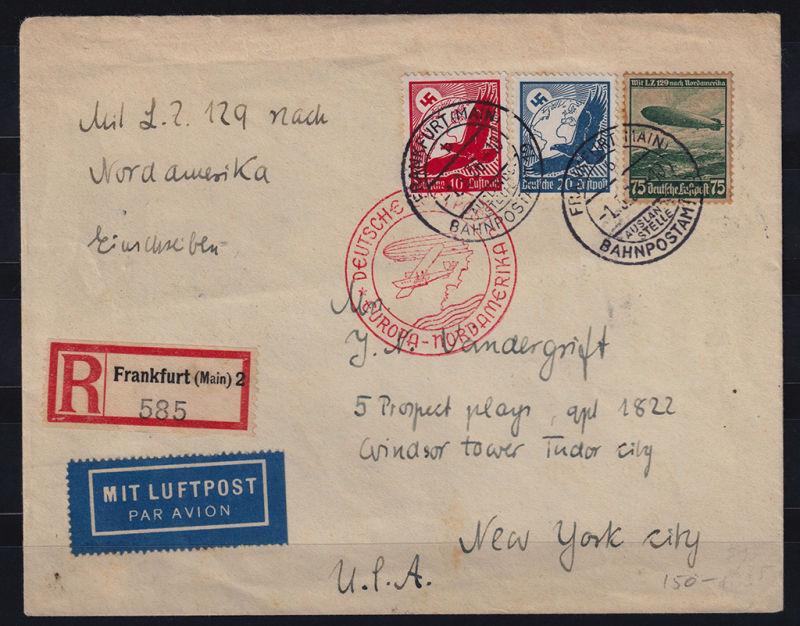 Mit L.Z. 129 nach
Nordamerika
Einschreiben
10 Deutsche Luftpost
Deutsche 20 Luftpost
Mit L.Z. 129 nach Nordamerika
75 Deutsche Luftpost 75
FRANKFURT (MAIN)
AUSLAND
STELLE
BAHNPOSTAMT
FRANKFURT (MAIN)
AUSLAND
STELLE
BAHNPOSTAMT
DEUTSCHE
EUROPA-NORDAMERIKA
R
Frankfurt (Main) 2
585
MIT LUFTPOST
PAR AVION
Mr.
J. N. Vandergrift
5 Prospect plays, apt 1822
Windsor tower Tudor city
New York city
U.S.A.
150-